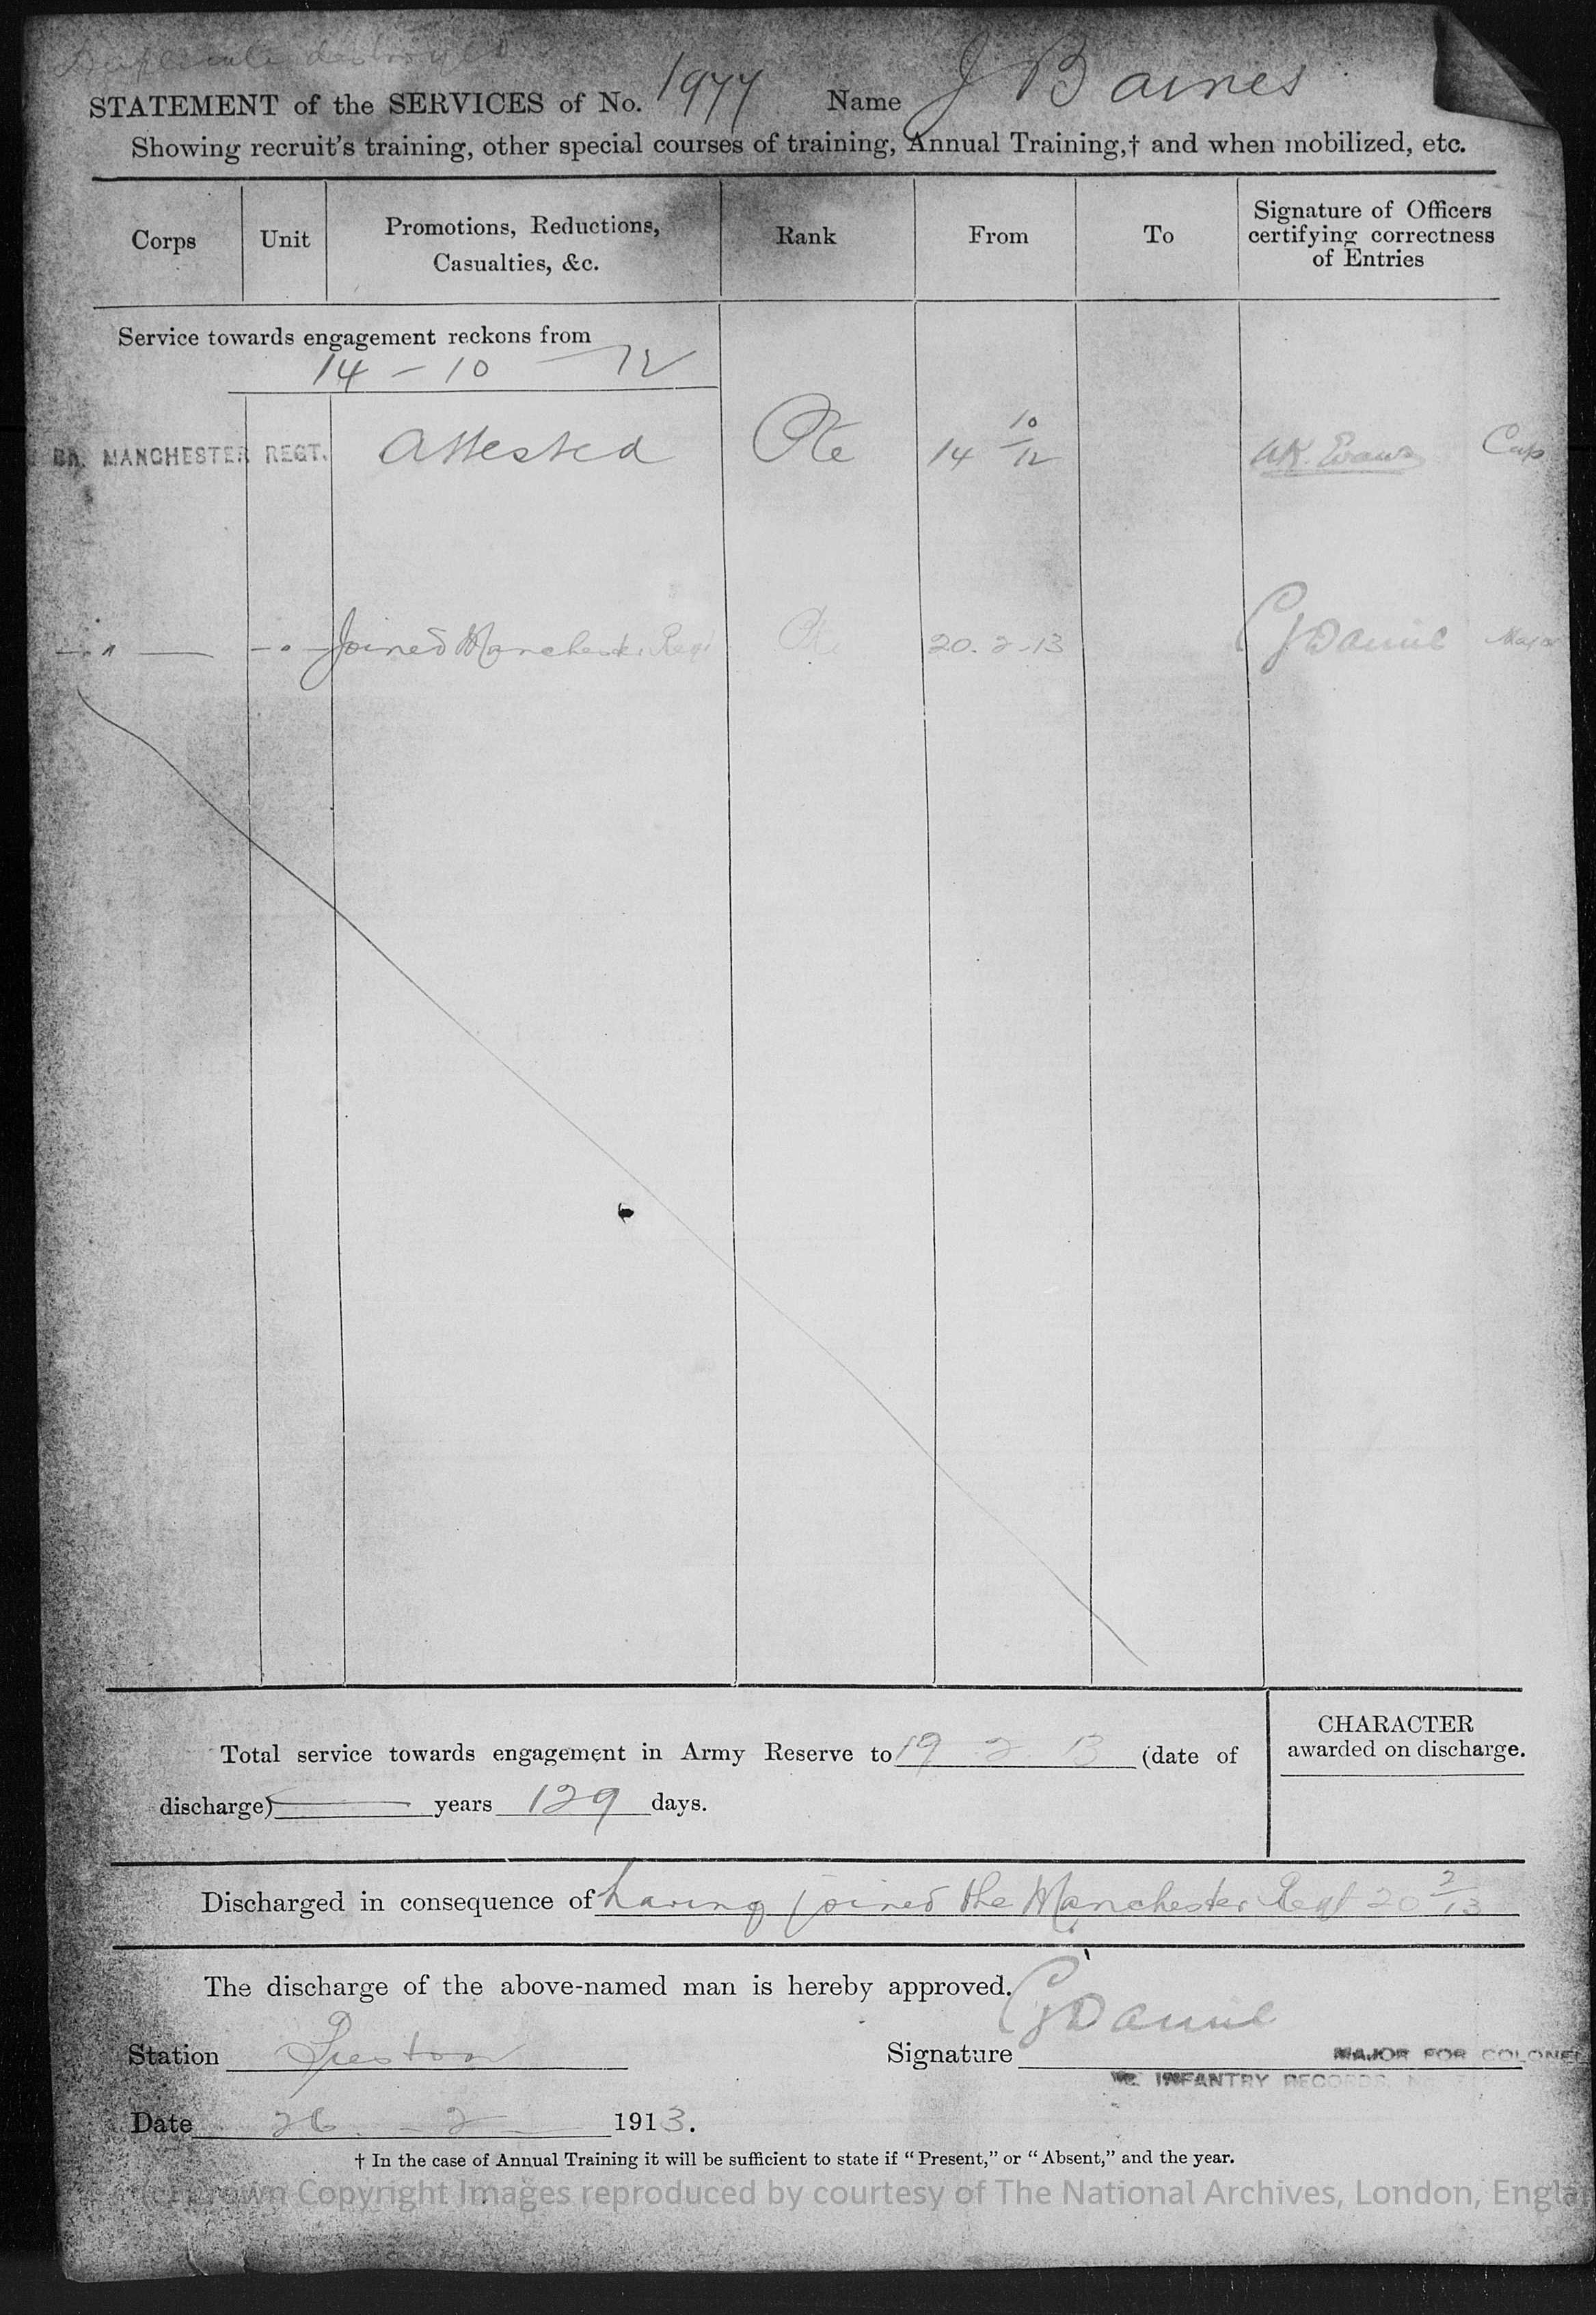 Duplicate destroyed
STATEMENT of the SERVICES of No. 1977 Name J Baines
Showing recruit's training, other special courses of training, Annual Training,† and when mobilized, etc.
Corps Unit Promotions, Reductions, Casualties, &c. Rank From To Signature of Officers certifying correctness of Entries
Service towards engagement reckons from
14 - 10 - 12
MANCHESTER REGT. Attested Pte 14 10/12 A.K. Evans Cap
" " Joined Manchester Regt Pte 20.2.13 Major
Total service towards engagement in Army Reserve to 19 2 13 (date of
discharge) — years 129 days.
CHARACTER
awarded on discharge.
Discharged in consequence of having joined the Manchester Regt 20 2/13
The discharge of the above-named man is hereby approved.
Station Preston Signature
MAJOR FOR COLONEL
INFANTRY RECORDS
Date 26 - 2 - 1913.
† In the case of Annual Training it will be sufficient to state if "Present," or "Absent," and the year.
(c) Crown Copyright Images reproduced by courtesy of The National Archives, London, Englan